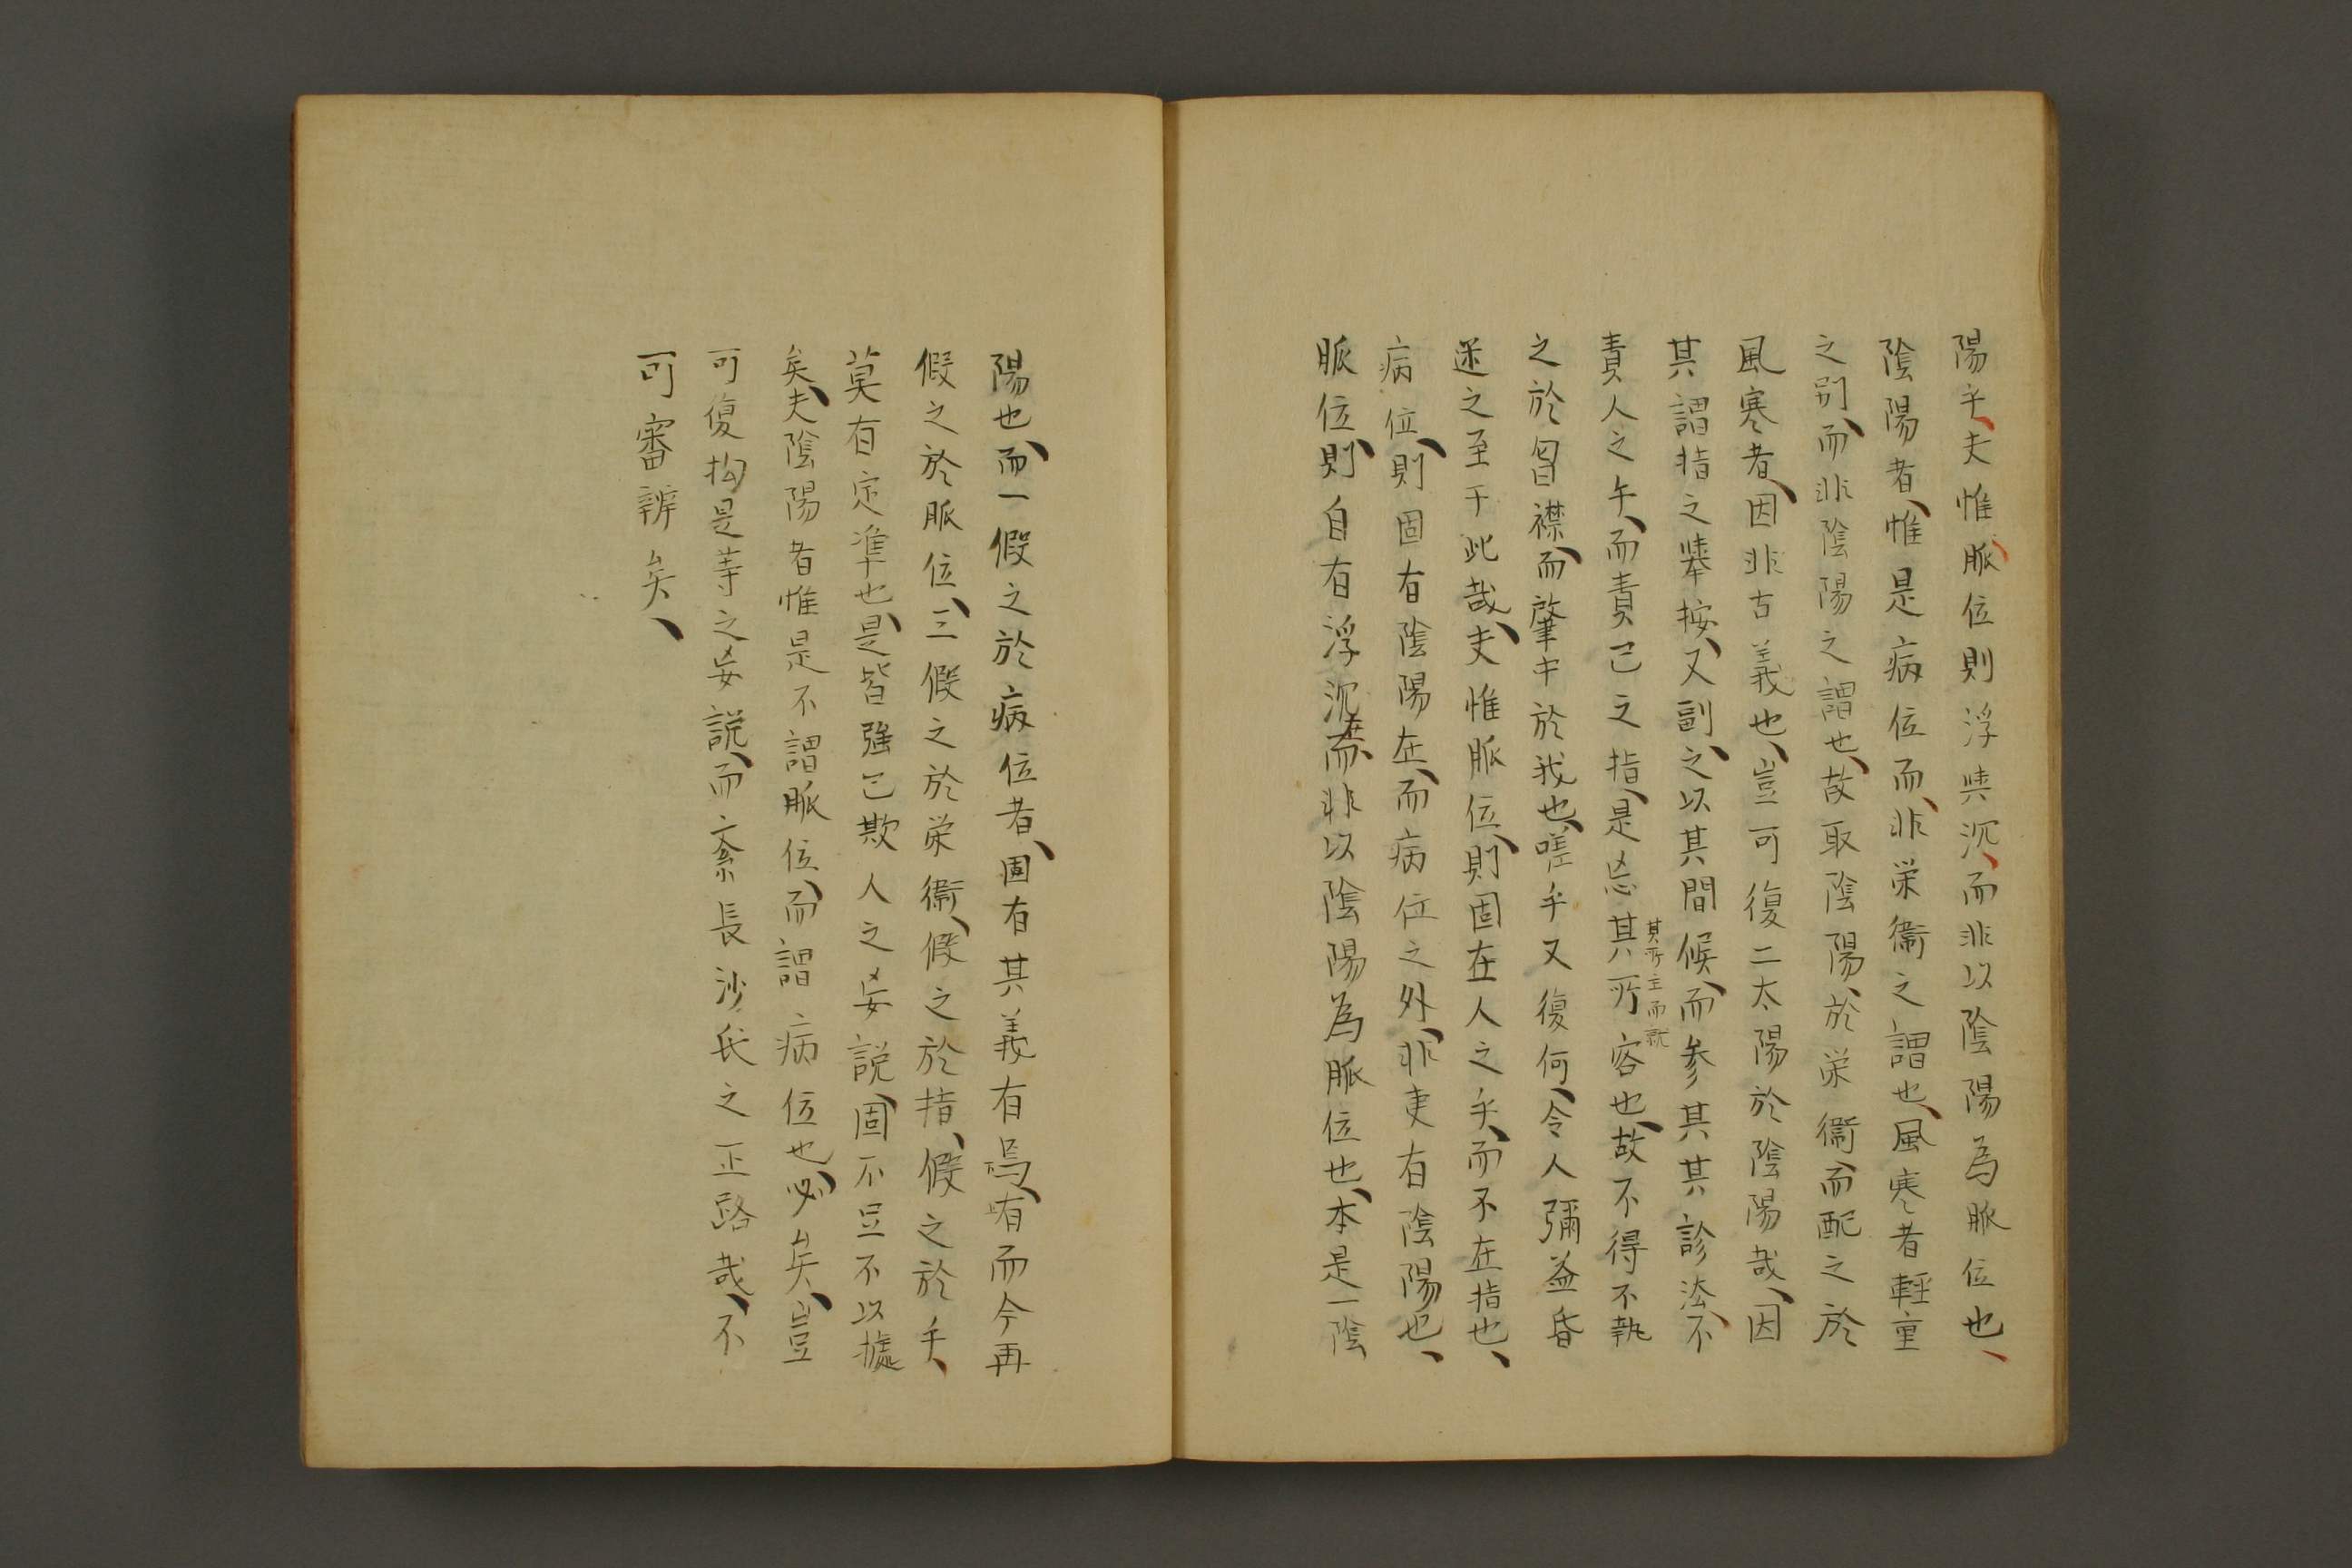 陽乎、夫惟脈位則浮與沉、而非以陰陽為脈位也、
陰陽者、惟是病位而、非栄衞之謂也、風寒者輕重
之別、而非陰陽之謂也、故取陰陽、於栄衞、而配之於
風寒者、因非古義也、豈可復二太陽於陰陽哉、因
其謂指之擧按、又副之、以其間候、而参其其診法、不
責人之乍、而責己之指、是忘其所容也、故不得不執
其所主而就
之於曾襟、而肇中於我也、嗟乎又復何、令人彌益昏
迷之至于此哉、夫惟脈位、則固在人之手、而不在指也、
病位、則固有陰陽在、而病位之外、非吏有陰陽也、
脈位、則自有浮沉在、而、非以陰陽為脈位也、本是一陰
陽也、而一假之於病位者、固有其義有焉、有而今再
假之於脈位、三假之於栄衞、假之於指、假之於手、
莫有定準也、是皆強己欺人之妄説、固不足不以據
矣、夫陰陽者惟是不謂脈位、而謂病位也、必矣、豈
可復拘是等之妄説、而紊長沙氏之正路哉、不
可審辨矣、